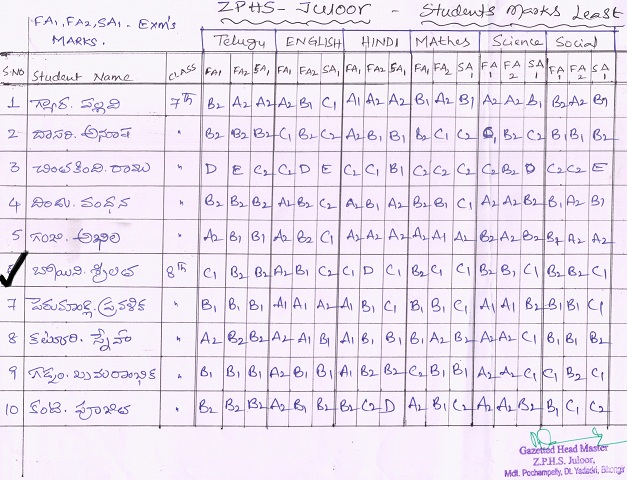 ZPHS- Juloor - Students Marks Least
FA1, FA2, SA1 - Exm's
MARKS.
Telugu ENGLISH HINDI Mathes Science Social
S.NO Student Name CLASS FA1 FA2 SA1 FA1 FA2 SA1 FA1 FA2 SA1 FA1 FA2 SA1 FA1 FA2 SA1 FA1 FA2 SA1
1 గ్యార. పల్లవి 7th B2 A2 A2 A2 B1 C1 A1 A2 A2 B1 A2 B1 A2 A2 B1 B2 A2 B1
2 దాసరి. అనూష " B2 B2 B2 C1 B2 C2 A2 B1 B1 B2 C1 C2 C1 B2 C2 B1 B1 B2
3 చింతకింది. రాము " D E C2 C2 D E C2 C1 B1 C2 C2 C2 C2 B2 D C2 C2 E
4 దిండు. వందన " B2 B2 B2 A2 B2 C2 A2 B1 A2 B2 B1 C1 A2 B2 B2 B1 A2 B1
5 గంజి. అఖిల " A2 B1 B1 A2 B2 C1 A2 A2 A2 A2 A1 A2 B2 A2 B2 B1 A2 A2
6 బోయిని. శ్రీలత 8th C1 B2 B2 A2 B1 C2 C1 D C1 B2 C1 C1 B2 B2 C1 B2 B2 C1
7 పెరుమాండ్ల. ప్రవళిక " B1 B1 B1 A1 A1 A2 A1 B1 C1 B1 B1 C1 A1 A1 B2 B1 B1 C1
8 కటూరి. స్నేహ " A2 B2 B2 A2 A1 B1 A1 B1 B1 B1 A2 B2 A2 A2 C1 B1 B1 B2
9 గడ్డం. " B1 B1 B1 A2 B1 B1 A1 B2 B2 C2 B1 B1 A2 A2 C1 C1 B2 C1
10 కంటె. పూజిత " B2 B2 B2 A2 B1 B2 B2 C2 D A2 B1 C2 A2 A2 B2 B1 C1 C2
Gazetted Head Master
Z.P.H.S. Juloor,
Mdl. Pochampally, Dt. Yadadri, Bhongir